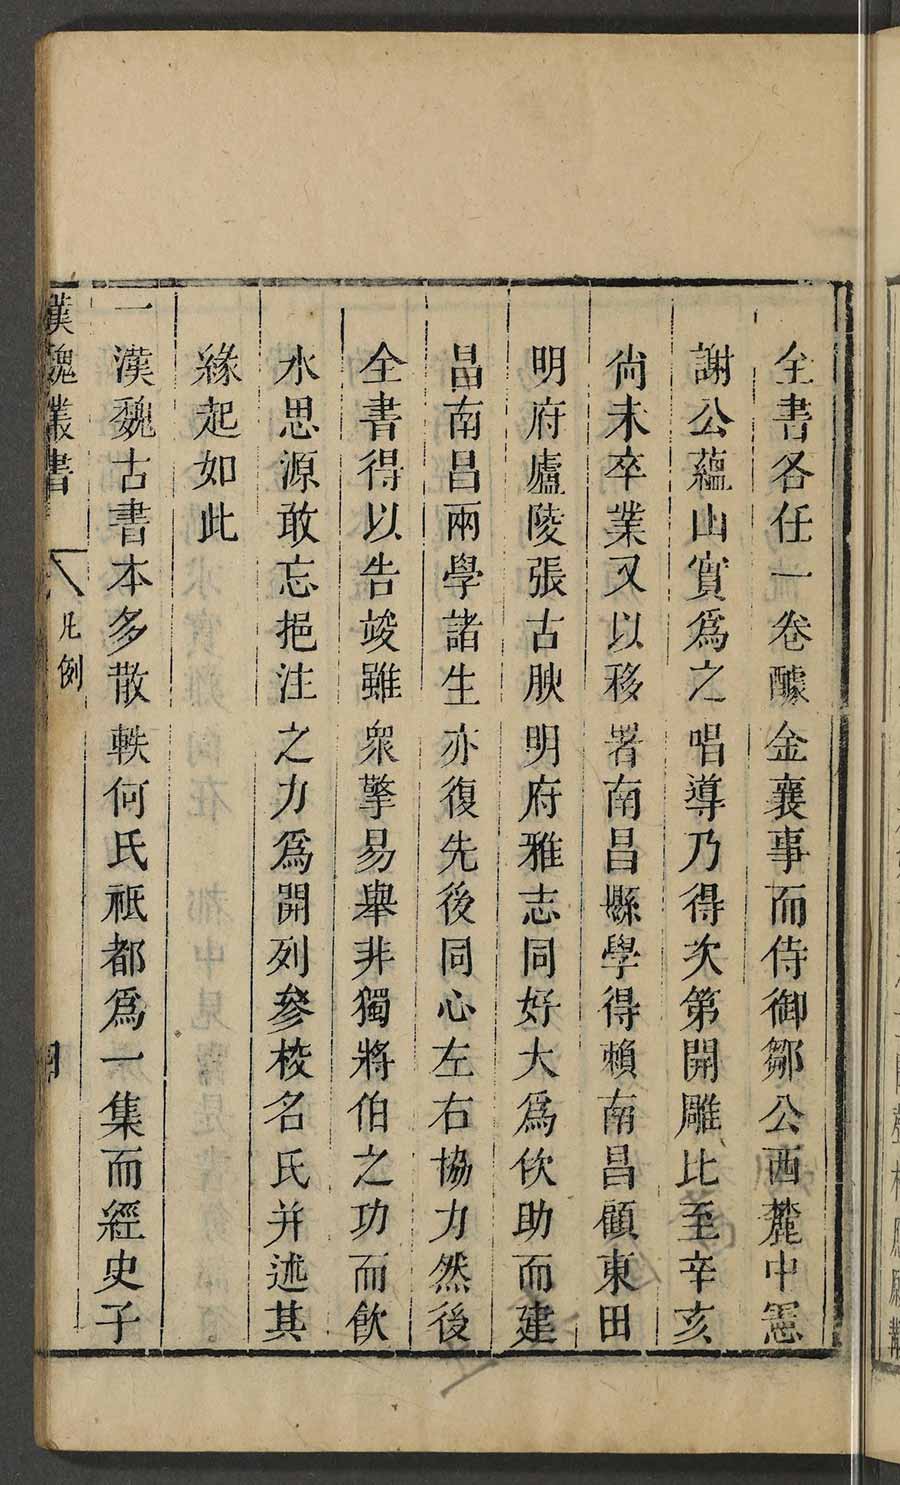 全書各任一卷醵金襄事而侍御鄒公西麓中憲
謝公蘊山實爲之唱導乃得次第開雕比至辛亥
尚未卒業又以移署南昌縣學得賴南昌顧東田
明府廬陵張古腴明府雅志同好大爲佽助而建
昌南昌兩學諸生亦復先後同心左右協力然後
全書得以告竣雖衆擎易舉非獨將伯之功而飲
水思源敢忘挹注之力爲開列參校名氏并述其
緣起如此
一漢魏古書本多散軼何氏祇都爲一集而經史子
漢魏叢書 凡例 四